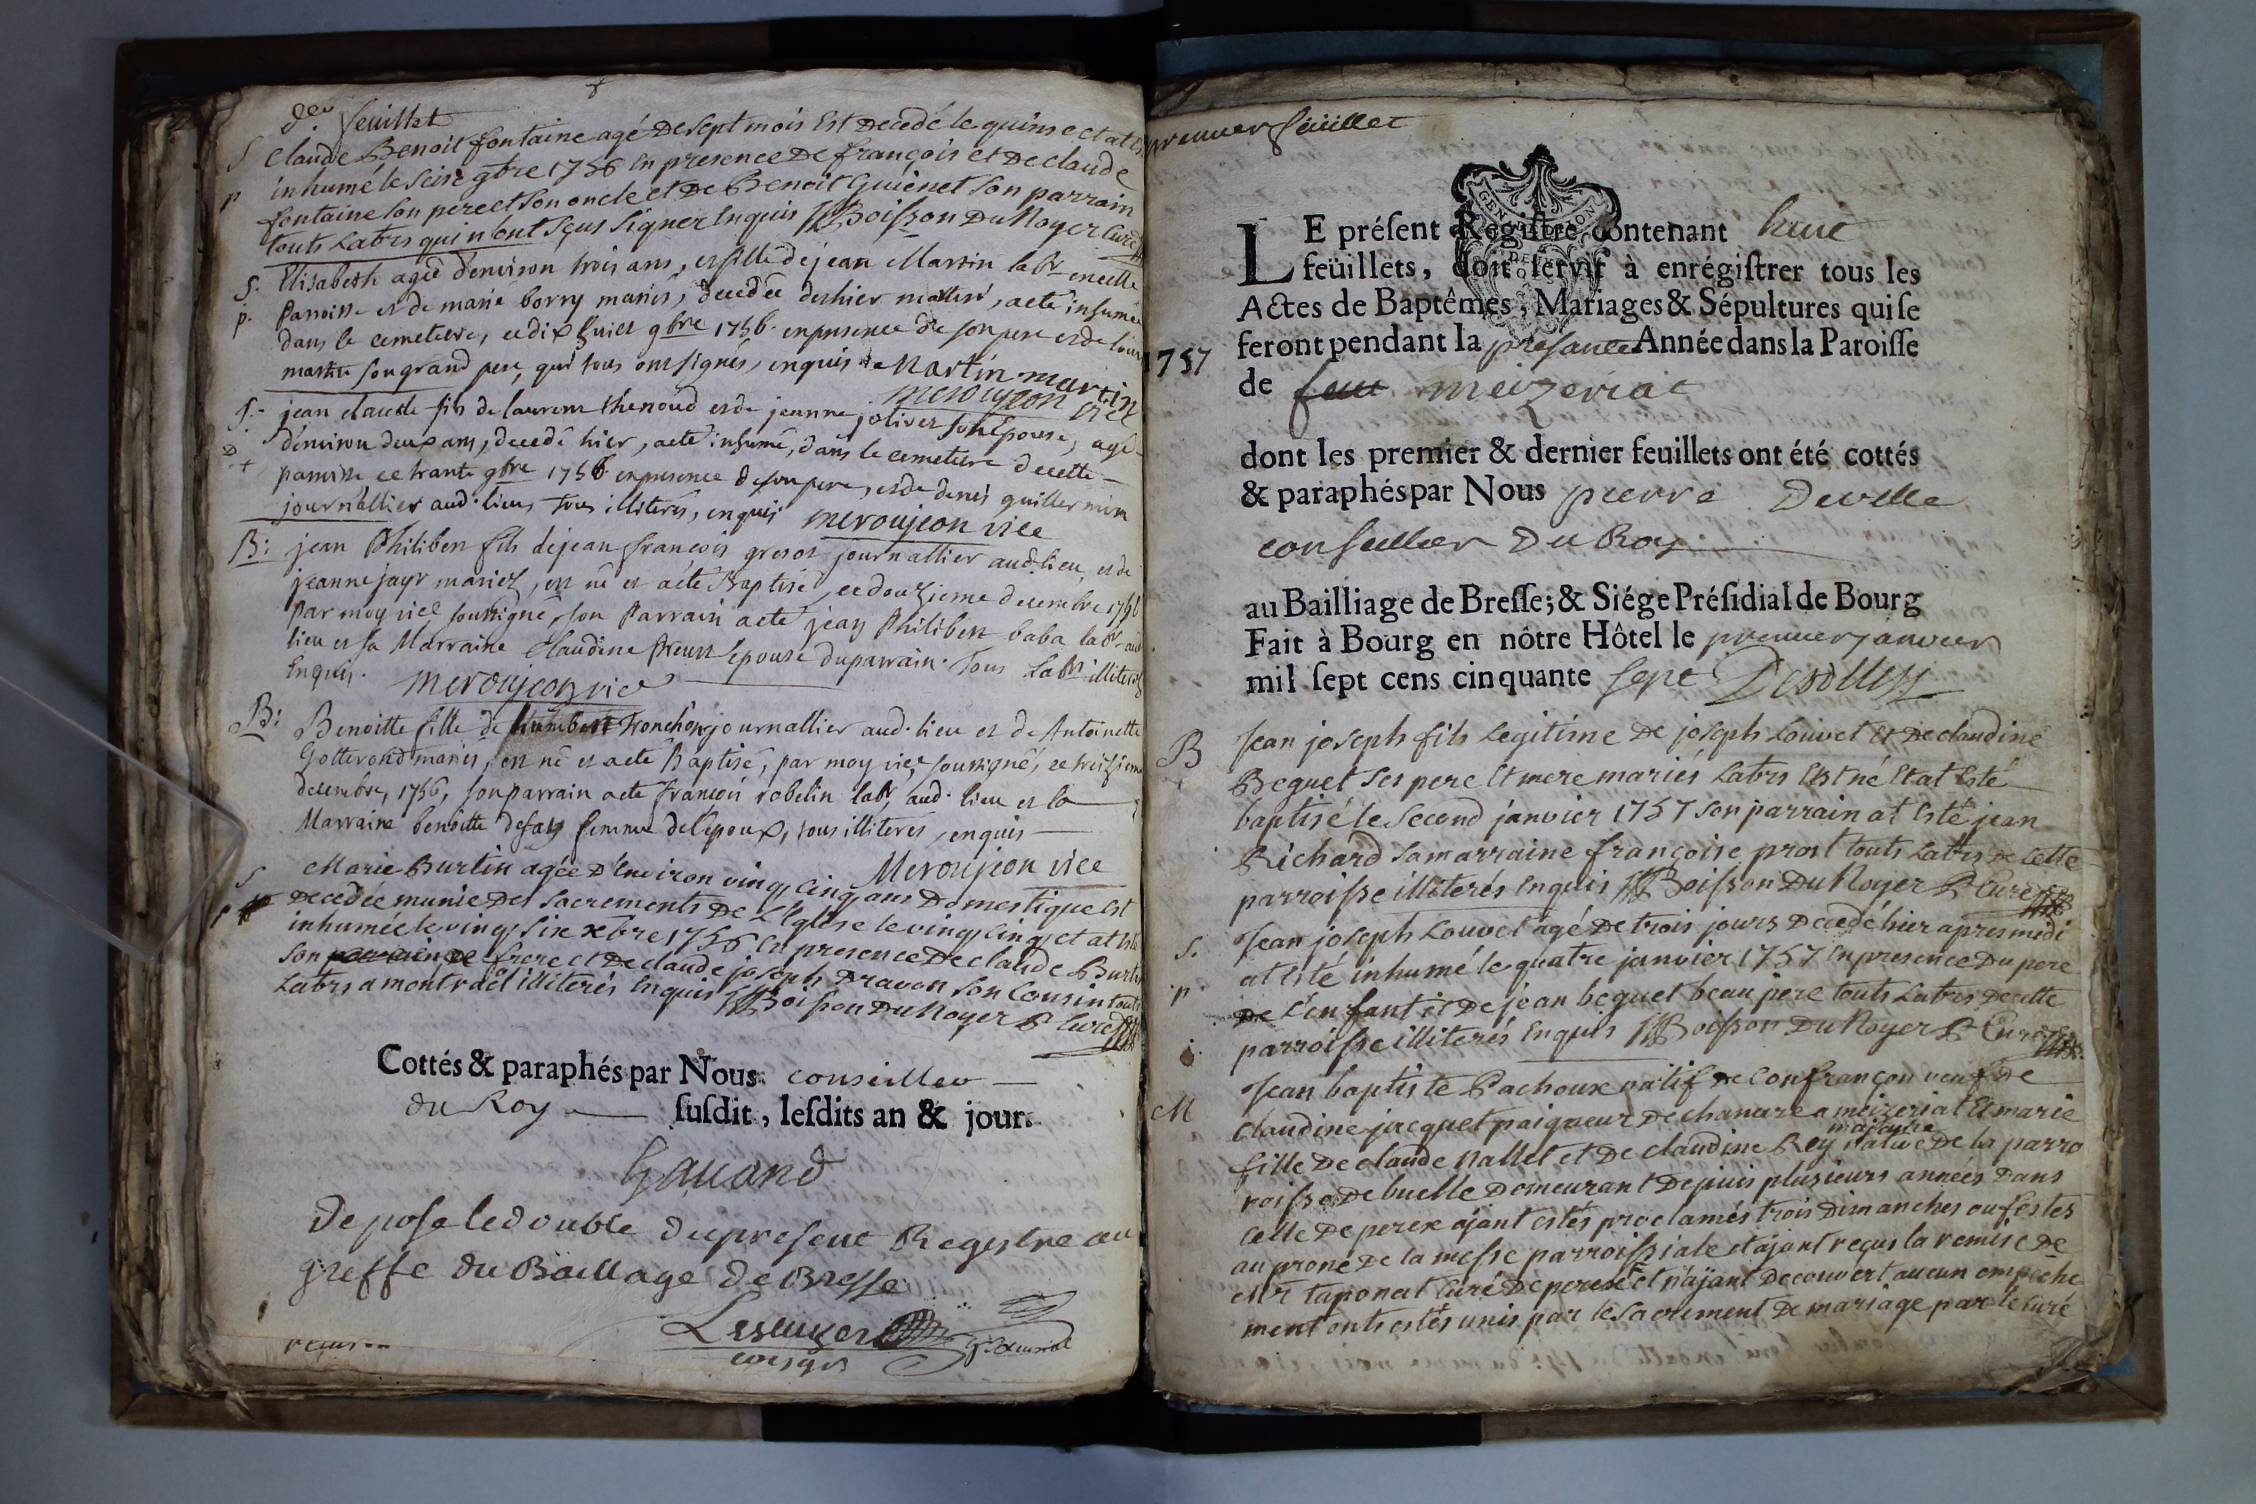 der feuillet
S claude Benoit fontaine agé de sept mois est decedé le quinse et at esté
p inhumé le seise 9bre 1756 en presence de françois et de claude
fontaine son pere et son oncle et de Benoit Guienet son parrain
touts Labrs qui n'ont sçus signer Enquis Boisson Du Noyer Curé
S. Elisabeth agée d'environ trois ans, est fille de jean Martin labr en cette
p. Parroisse et de marie borry mariés, decedée dès hier matin, a eté inhumée
dans le cemetiere, ce dix huict 9bre 1756. en presence de son pere et de louis
martin son grand pere, qui tous ont signés, enquis Martin martin
meroujeon vice
S.- jean claude fils de laurent thenoud et de jeanne jolivet son Epouse, agé
D d'environ deux ans, decedé hier, a eté inhumé, dans le cemetiere de cette
+ parroisse ce trante 9bre 1756 en presence de son pere, et de denis guillermin
journallier aud. lieu, tous illiterés, enquis meroujeon vice
B: jean Philibert fils de jean françois gresot journallier aud. lieu, et de
jeanne jayr mariez, est né et a eté Baptisé, ce douzieme decembre 1756
par moy vice soussigné, son Parrain a eté jean Philibert baba labr aud
lieu et sa Marraine Claudine Preust Epouse du parrain. Tous labrs illiterés
Enquis. meroujeon vice
B: Benoitte fille de humbert Tronchon journallier aud. lieu et de Antoinette
Gotterond mariés, est né et a eté Baptisé, par moy vice soussigné, ce treizieme
decembre, 1756, son parrain a eté françois robelin labr, aud. lieu et la
Marraine benoitte defay femme de l'epoux, tous illiterés, enquis
Meroujeon vice
S Marie Burtin agée d'Environ vingt cinq ans Domestique est
p decedée munie des sacrements de L'Eglise le vingt cinq et at esté
inhumée le vingt six xbre 1756 en presence de claude Burtin
son frere et de claude joseph Dravon son Cousin touts
Labrs a montracol illiterés Enquis Boisson Du Noyer P Curé
Cottés & paraphés par Nous conseiller
du Roy susdit, lesdits an & jour.
Gauand
Depose le double du present Registre au
greffe du Baillage de Bresse
premier feuillet
LE présent Registre contenant huit
feüillets, doit servir à enrégistrer tous les
Actes de Baptêmes, Mariages & Sépultures qui se
feront pendant la presante Année dans la Paroisse
1757
de meizeriat
dont les premier & dernier feuillets ont été cottés
& paraphés par Nous pierre Deville
conseiller Du Roy
au Bailliage de Bresse; & Siége Présidial de Bourg
Fait à Bourg en nôtre Hôtel le premier janvier
mil sept cens cinquante sept
B Jean joseph fils Legitime de joseph Louvet Et de claudine
Beguet ses pere Et mere mariés Labrs Est né Et at Esté
baptisé le second janvier 1757 son parrain at Esté jean
Richard sa marraine françoise prost touts Labrs de cette
parroisse illiterés Enquis Boisson Du Noyer P Curé
S. Jean joseph Louvet agé de trois jours decedé hier apres midi
p. at Esté inhumé le quatre janvier 1757 En presence du pere
de l'enfant et de jean beguet beau pere touts Labrs de cette
parroisse illiterés Enquis Boisson Du Noyer P Curé
Jean baptiste Pachoux natif de Confrançon veuf de
M Claudine jacquet paigneur de chanvre a meizeriat Et marie
majeure
fille de claude Nallet et de claudine Rey native de la parro
roisse de buelle demeurant depuis plusieurs années dans
celle de perex ajant estés proclamés trois dimanches ou festes
au prone de la messe parroissiale et ajant reçus la remise de
Mr taponat Curé de perex Et n'ajant decouvert aucun empeche
ment onts estés unis par le sacrement de mariage par le Curé